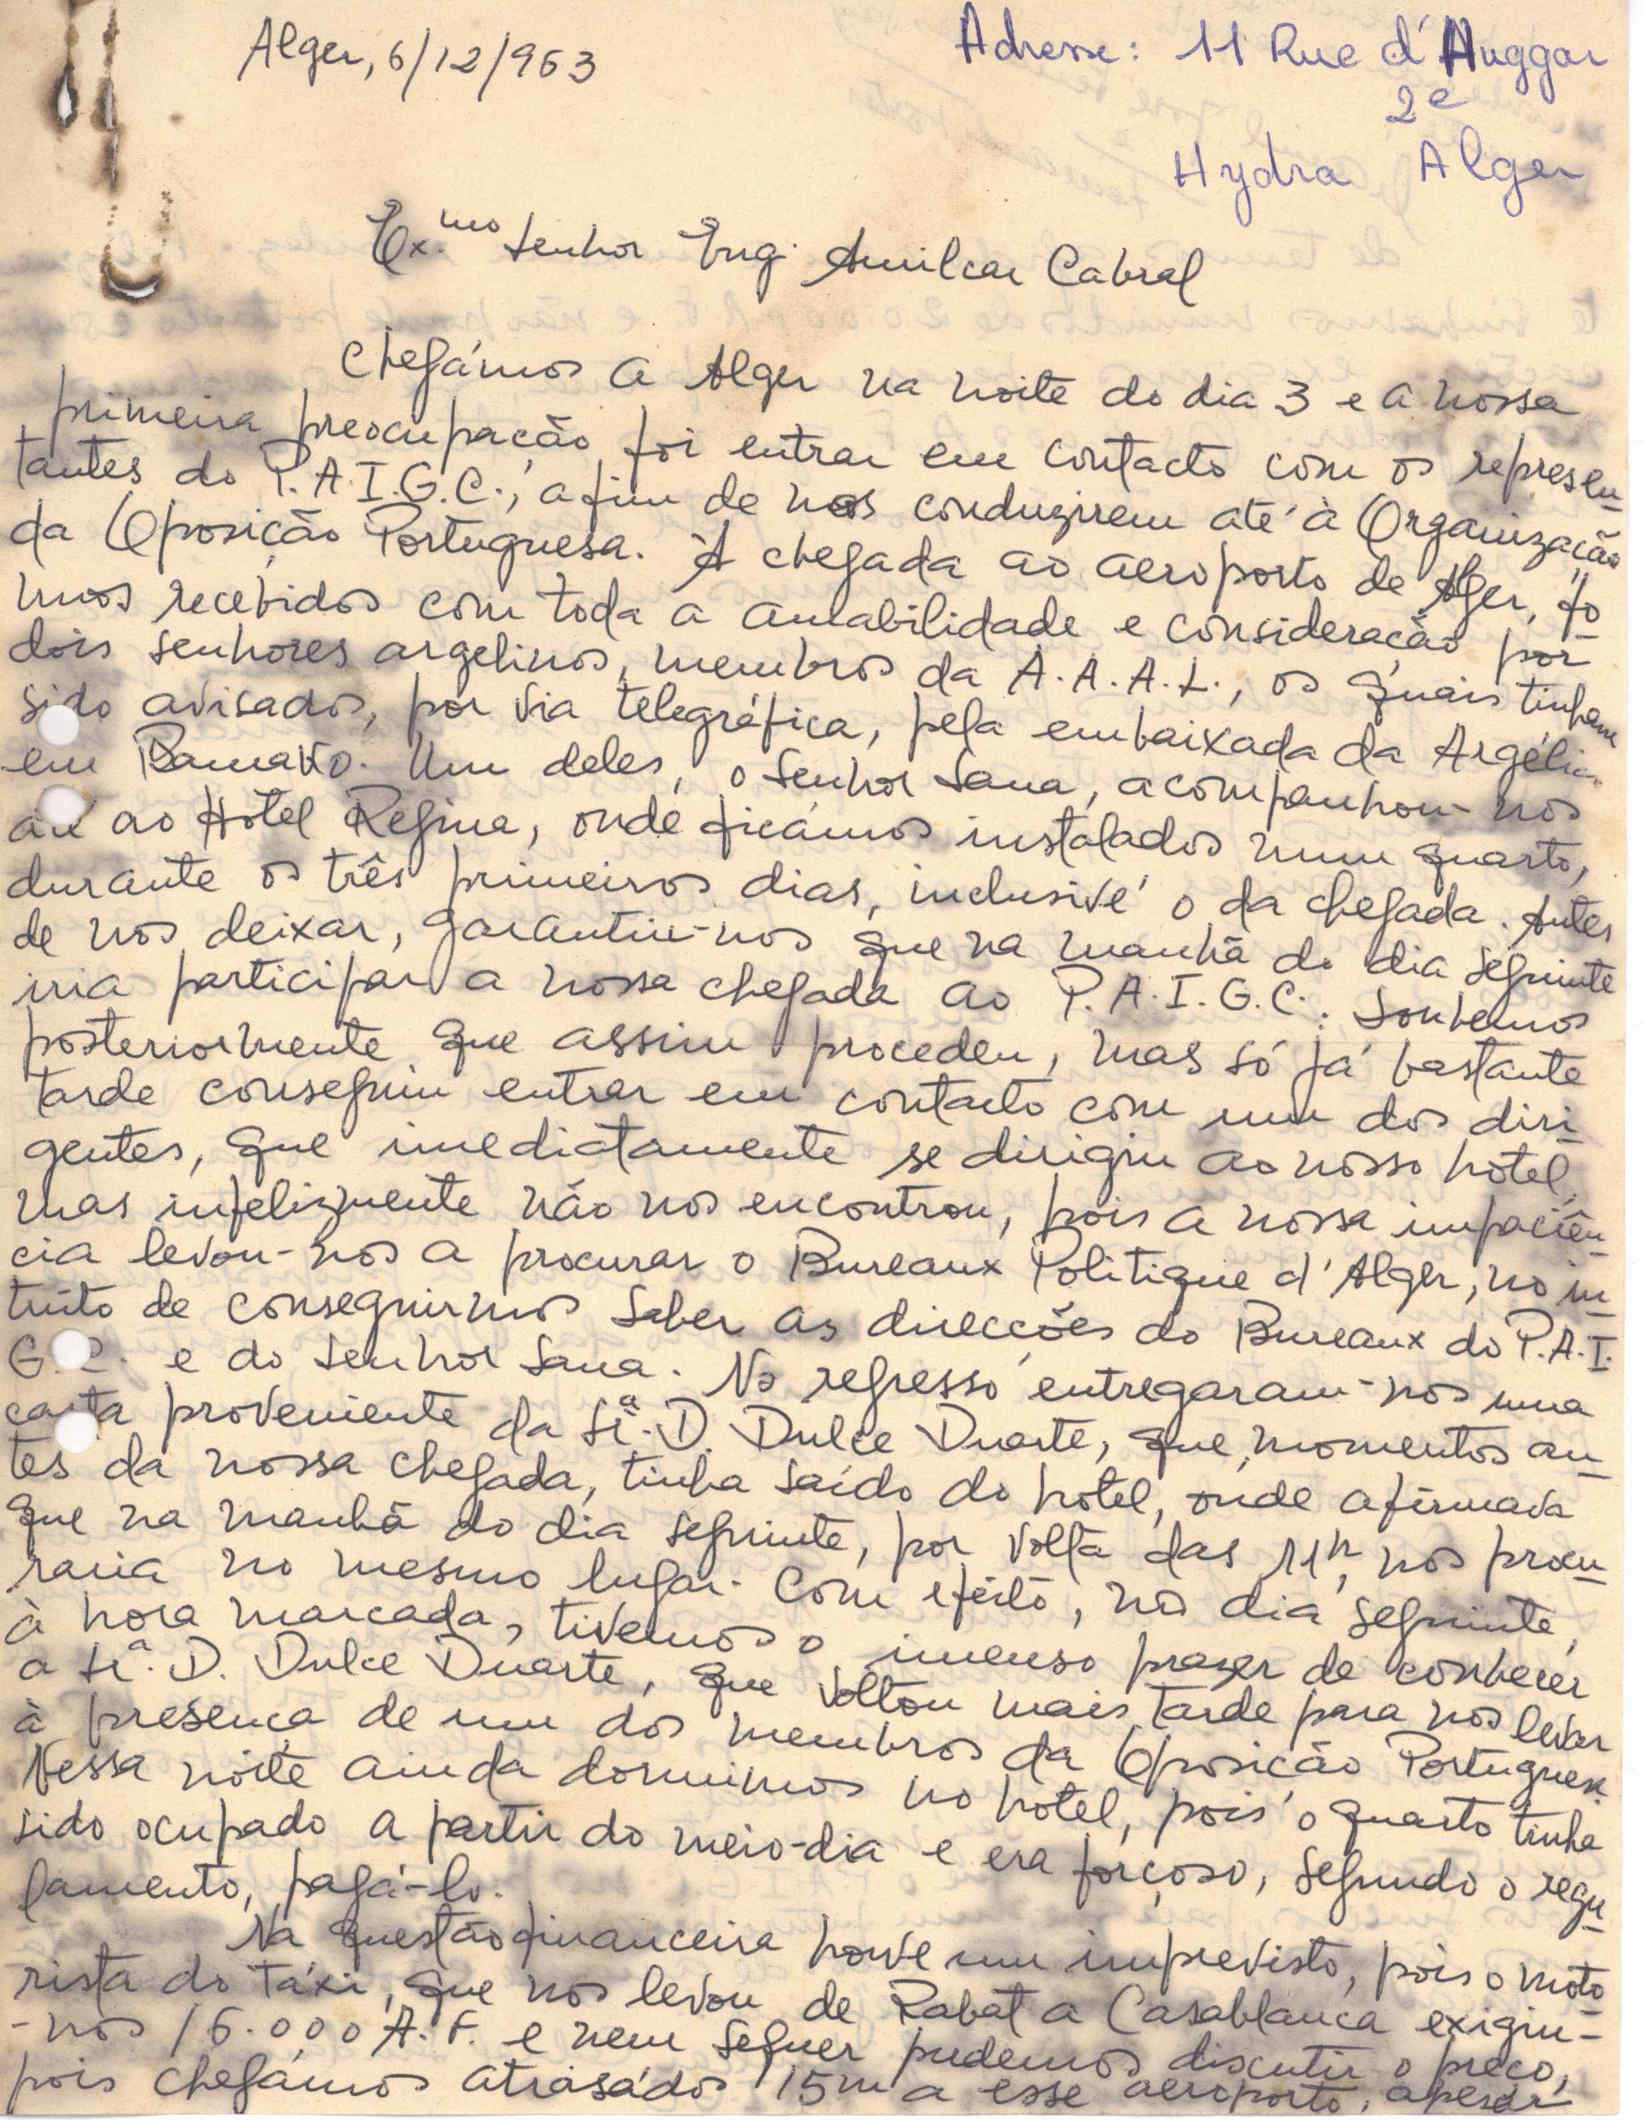 Alger, 6/12/963
Adresse: 11 Rue d'Huggar
2e
Hydra Alger
Ex.mo Senhor Eng. Amilcar Cabral
Chegámos a Alger na noite do dia 3 e a nossa
primeira preocupação foi entrar em contacto com os represen-
tantes do P.A.I.G.C., a fim de nos conduzirem até à Organização
da Oposição Portuguesa. À chegada ao aeroporto de Alger, fo-
mos recebidos com toda a amabilidade e consideração por
dois senhores argelinos, membros da A.A.A.L., os quais tinham
sido avisados, por via telegráfica, pela embaixada da Argélia
em Bamako. Um deles, o Senhor Sana, acompanhou-nos
até ao Hotel Regina, onde ficámos instalados num quarto,
durante os três primeiros dias, inclusivé o da chegada. Antes
de nos deixar, garantiu-nos que na manhã do dia seguinte
iria participar a nossa chegada ao P.A.I.G.C.. Soubemos
posteriormente que assim procedeu, mas só já bastante
tarde conseguiu entrar em contacto com um dos diri-
gentes, que imediatamente se dirigiu ao nosso hotel,
mas infelizmente não nos encontrou, pois a nossa impaciên-
cia levou-nos a procurar o Bureaux Politique d'Alger, no in-
tuito de conseguirmos saber as direcções do Bureaux do P.A.I.
G.C. e do Senhor Sana. No regresso entregaram-nos uma
carta proveniente da Sr.ª D. Dulce Duarte, que, momentos an-
tes da nossa chegada, tinha saído do hotel, onde afirmava
que na manhã do dia seguinte, por volta das 11h, nos procu-
raria no mesmo lugar. Com efeito, no dia seguinte,
à hora marcada, tivemos o imenso prazer de conhecer
a Sr.ª D. Dulce Duarte, que voltou mais tarde para nos levar
à presença de um dos membros da Oposição Portuguesa.
Nessa noite ainda dormimos no hotel, pois o quarto tinha
sido ocupado a partir do meio-dia e era forçoso, segundo o regu-
lamento, pagá-lo.
Na questão financeira houve um imprevisto, pois o moto-
rista do táxi, que nos levou de Rabat a Casablanca exigiu-
-nos 16.000 A.F. e nem sequer pudemos discutir o preço,
pois chegámos atrasados 15m a esse aeroporto, apesar